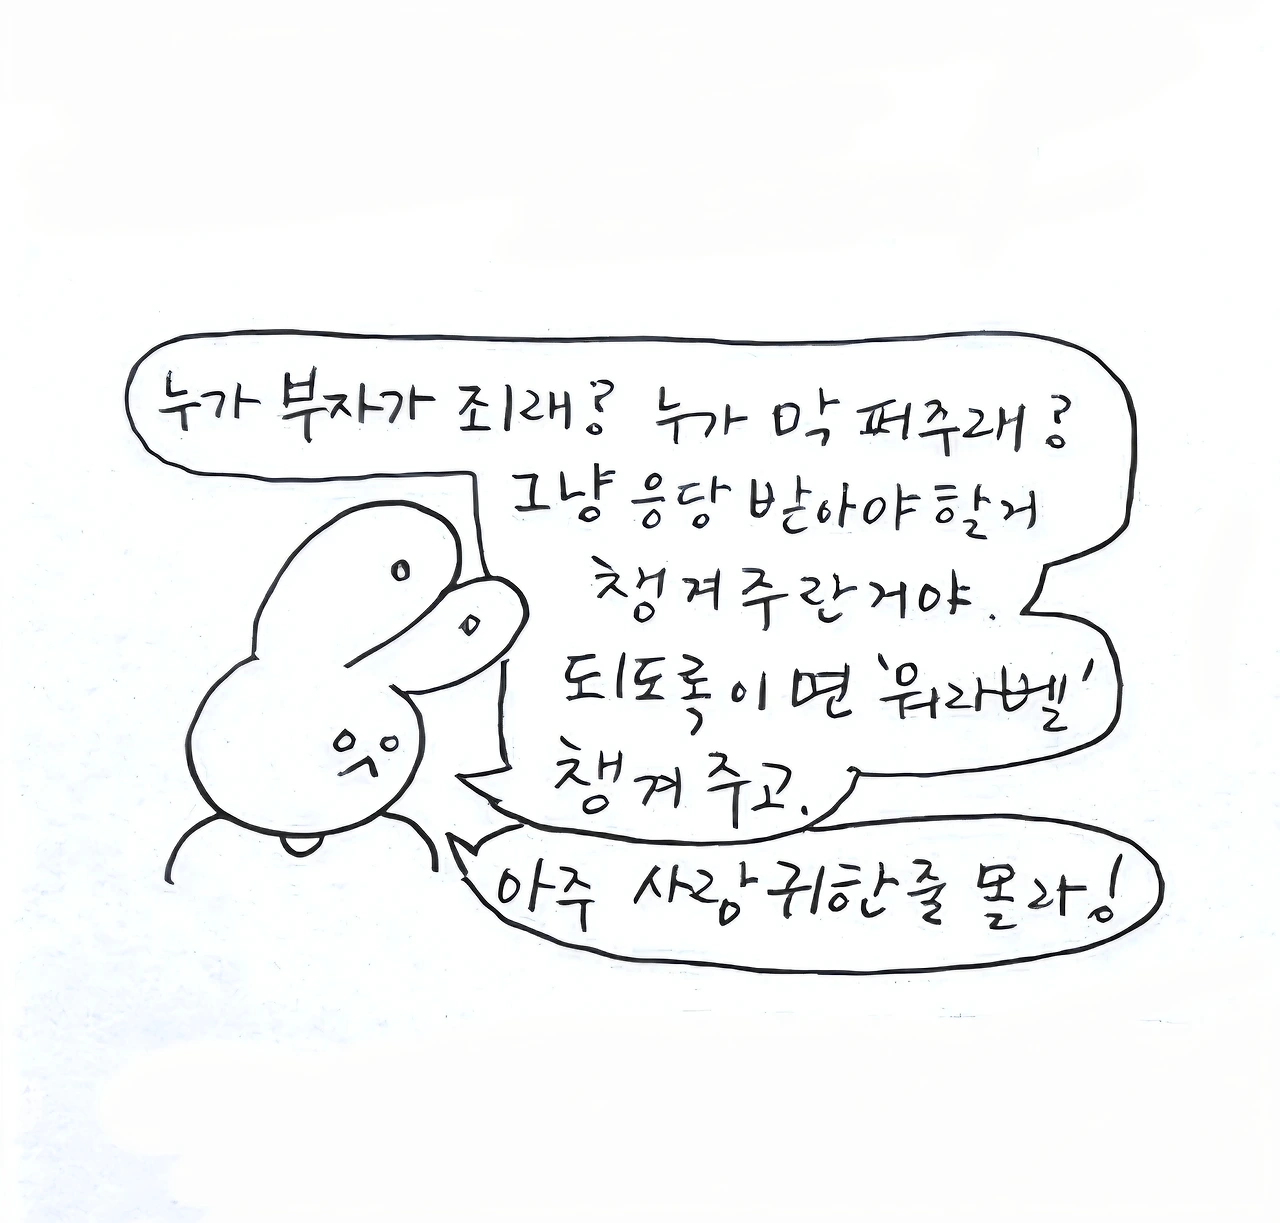 누가 부자가 죄래? 누가 막 퍼주래?
그냥 응당 받아야 할거
챙겨 주란 거야.
되도록이면 '워라벨'
챙겨 주고.
아주 사람 귀한줄 몰라!